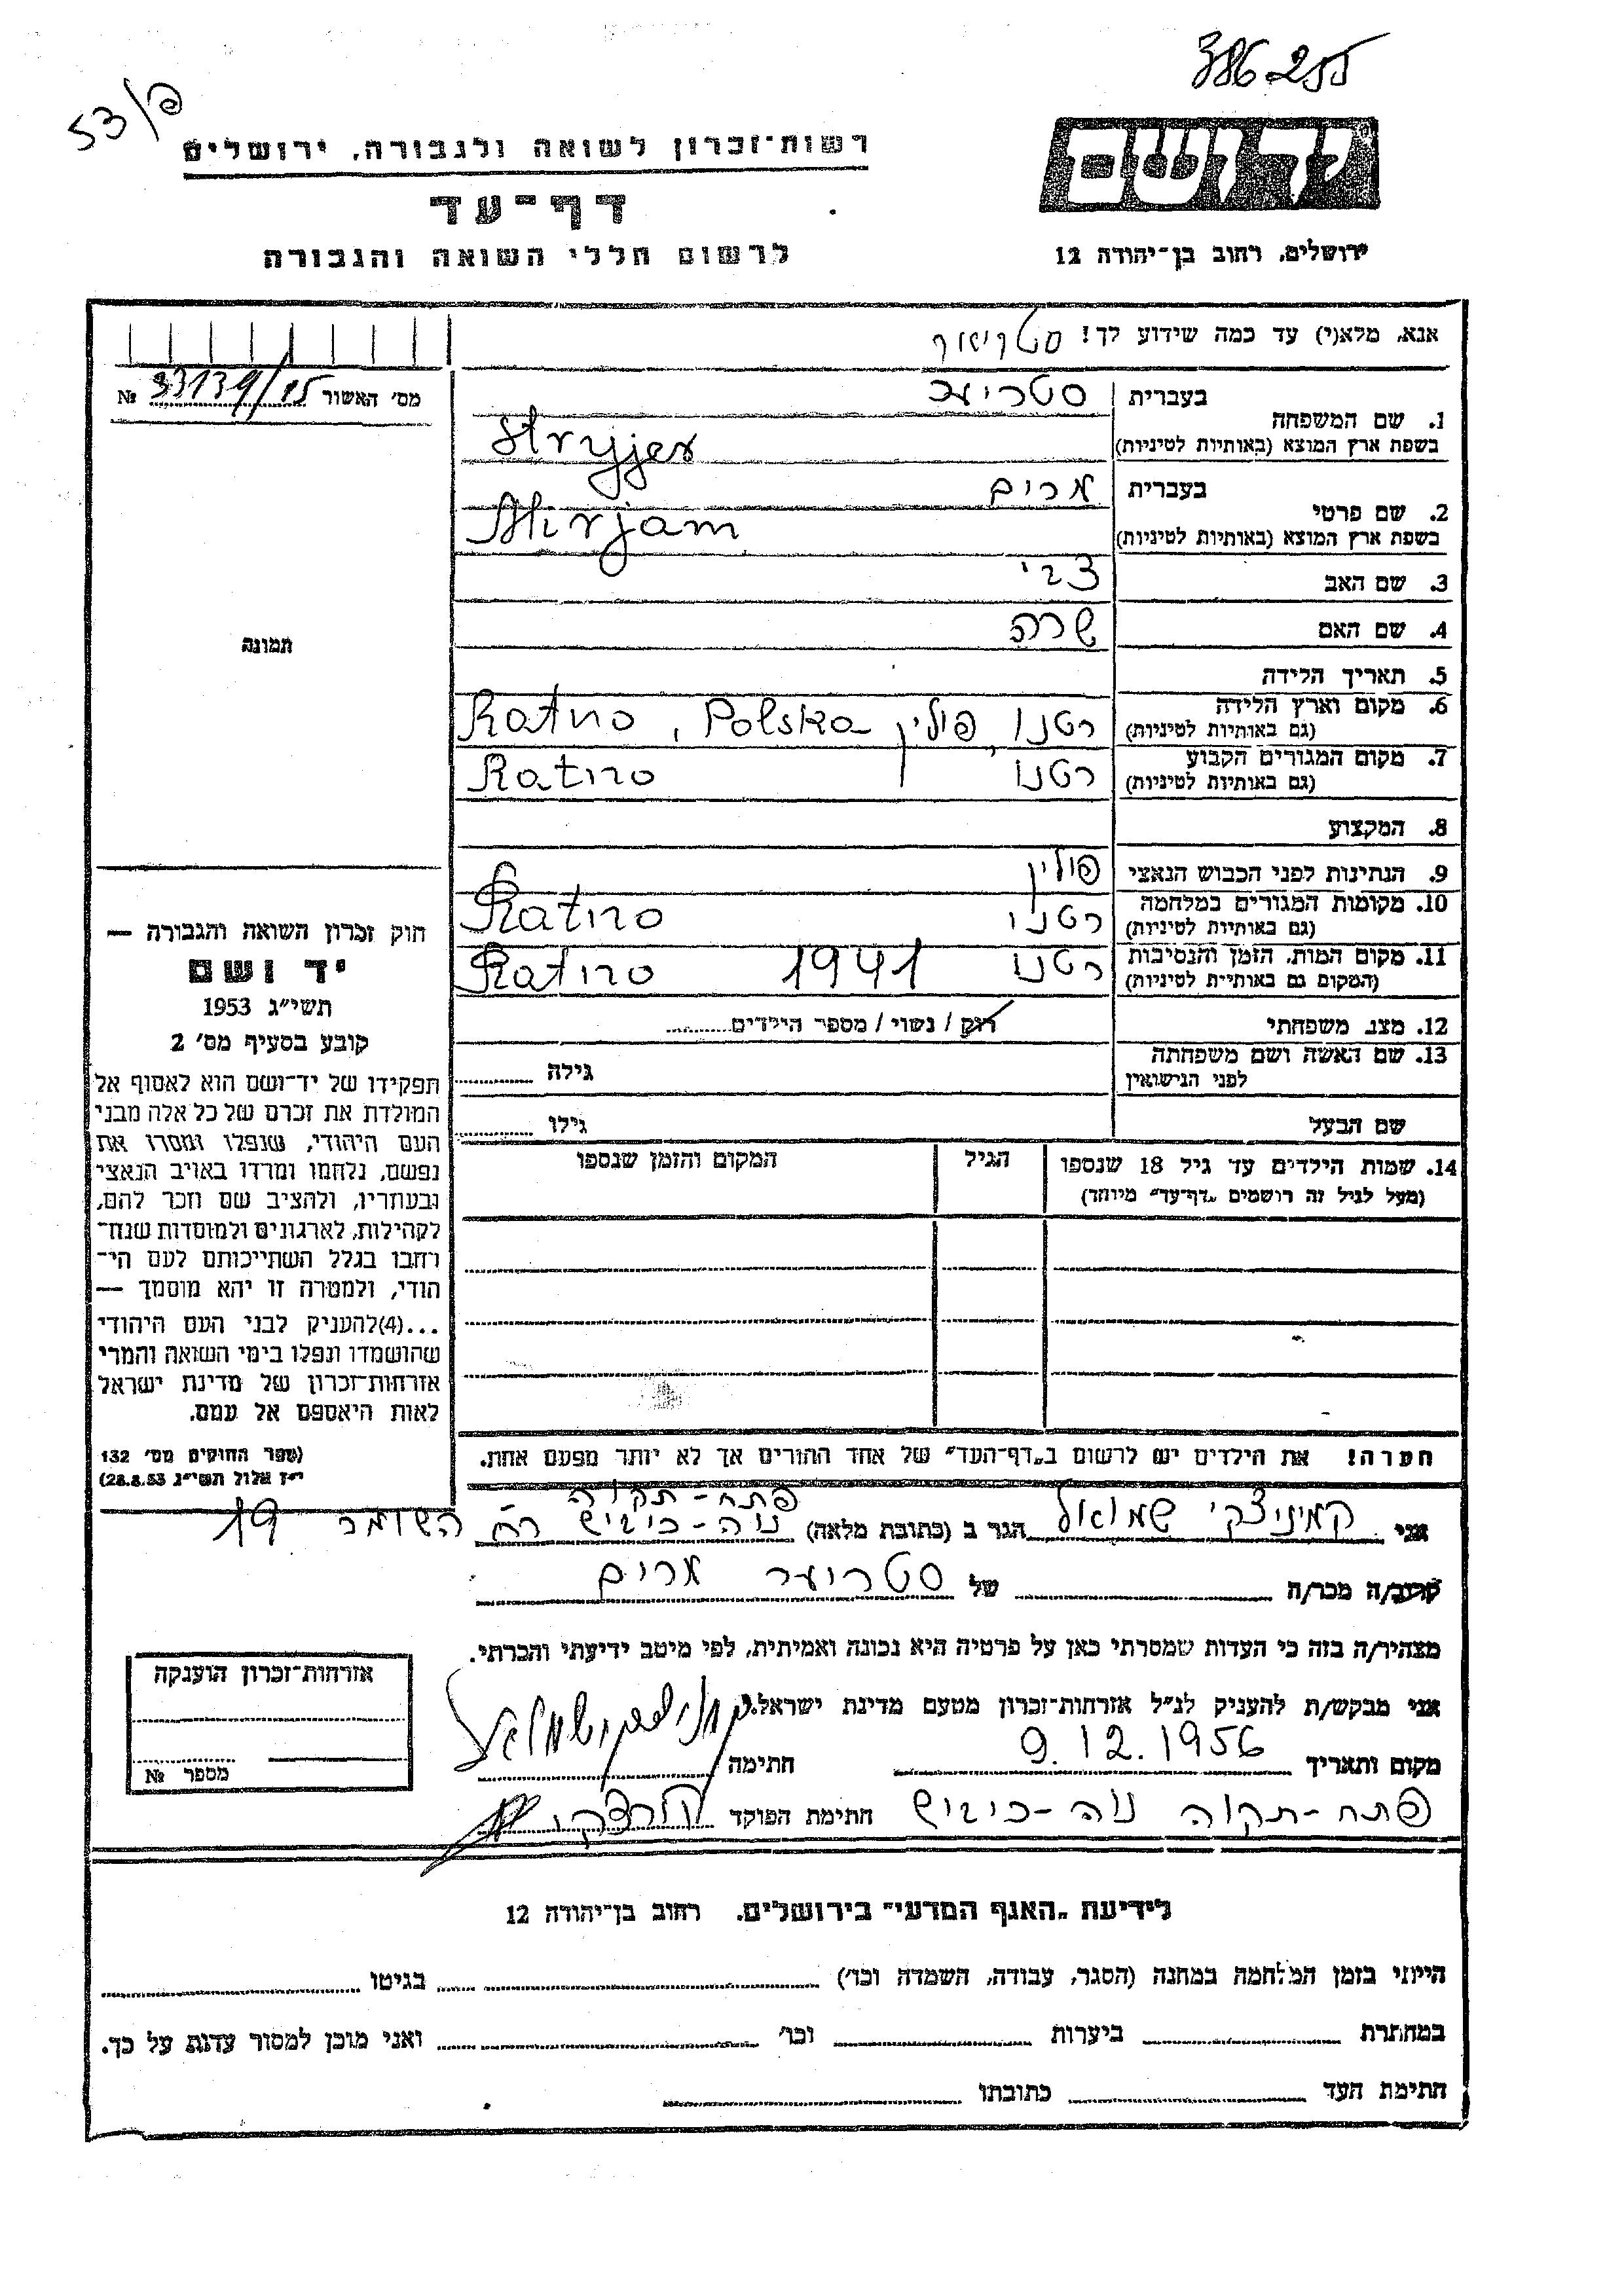 386255
53/פ
רשות-זכרון לשואה ולגבורה, ירושלים
דף-עד
לרשום חללי השואה והגבורה
ידושם
ירושלים, רחוב בן-יהודה 12
אנא, מלא(י) עד כמה שידוע לך!
מס' האשור 33139/15 №
1. שם המשפחה
בעברית
בשפת ארץ המוצא (באותיות לטיניות) Stryjer
2. שם פרטי
בעברית מרים
בשפת ארץ המוצא (באותיות לטיניות) Mirjam
3. שם האב צבי
4. שם האם שרה
5. תאריך הלידה
6. מקום וארץ הלידה רטנו, פולין Ratno, Polska
(גם באותיות לטיניות)
7. מקום המגורים הקבוע רטנו Ratno
(גם באותיות לטיניות)
8. המקצוע
9. הנתינות לפני הכבוש הנאצי פולין
10. מקומות המגורים במלחמה רטנו Ratno
(גם באותיות לטיניות)
11. מקום המות, הזמן והנסיבות רטנו 1941 Ratno
(המקום גם באותיות לטיניות)
12. מצב משפחתי רוק / נשוי / מספר הילדים
13. שם האשה ושם משפחתה גילה
לפני הנישואין
שם הבעל גילו
14. שמות הילדים עד גיל 18 שנספו הגיל המקום והזמן שנספו
(מעל לגיל זה רושמים „דף-עד" מיוחד)
הערה! את הילדים יש לרשום ב„דף-העד" של אחד ההורים אך לא יותר מפעם אחת.
תמונה
חוק זכרון השואה והגבורה —
יד ושם
תשי"ג 1953
קובע בסעיף מס' 2
תפקידו של יד-ושם הוא לאסוף אל
המולדת את זכרם של כל אלה מבני
העם היהודי, שנפלו ומסרו את
נפשם, נלחמו ומרדו באויב הנאצי
ובעוזריו, ולהציב שם וזכר להם,
לקהילות, לארגונים ולמוסדות שנח-
רבו בגלל השתייכותם לעם הי-
הודי, ולמטרה זו יהא מוסמך —
...(4)להעניק לבני העם היהודי
שהושמדו ונפלו בימי השואה והמרי
אזרחות-זכרון של מדינת ישראל
לאות היאספם אל עמם.
(ספר החוקים מס' 132
י"ז אלול תשי"ג 28.8.53)
פתח-תקוה
אני קמיניצקי שמואל הגר ב (כתובת מלאה) נוה-כיבוש רח השומר 19
קרוב/ה מכר/ה של סטריער מרים
מצהיר/ה בזה כי העדות שמסרתי כאן על פרטיה היא נכונה ואמיתית, לפי מיטב ידיעתי והכרתי.
אני מבקש/ת להעניק לנ"ל אזרחות-זכרון מטעם מדינת ישראל.
מקום ותאריך 9.12.1956 חתימה
פתח-תקוה נוה-כיבוש חתימת הפוקד
אזרחות-זכרון הוענקה
מספר №
לידיעת „האגף המדעי" בירושלים. רחוב בן-יהודה 12
הייתי בזמן המלחמה במחנה (הסגר, עבודה, השמדה וכו') בגיטו
במחתרת ביערות וכו' ואני מוכן למסור עדות על כך.
חתימת העד כתובתו